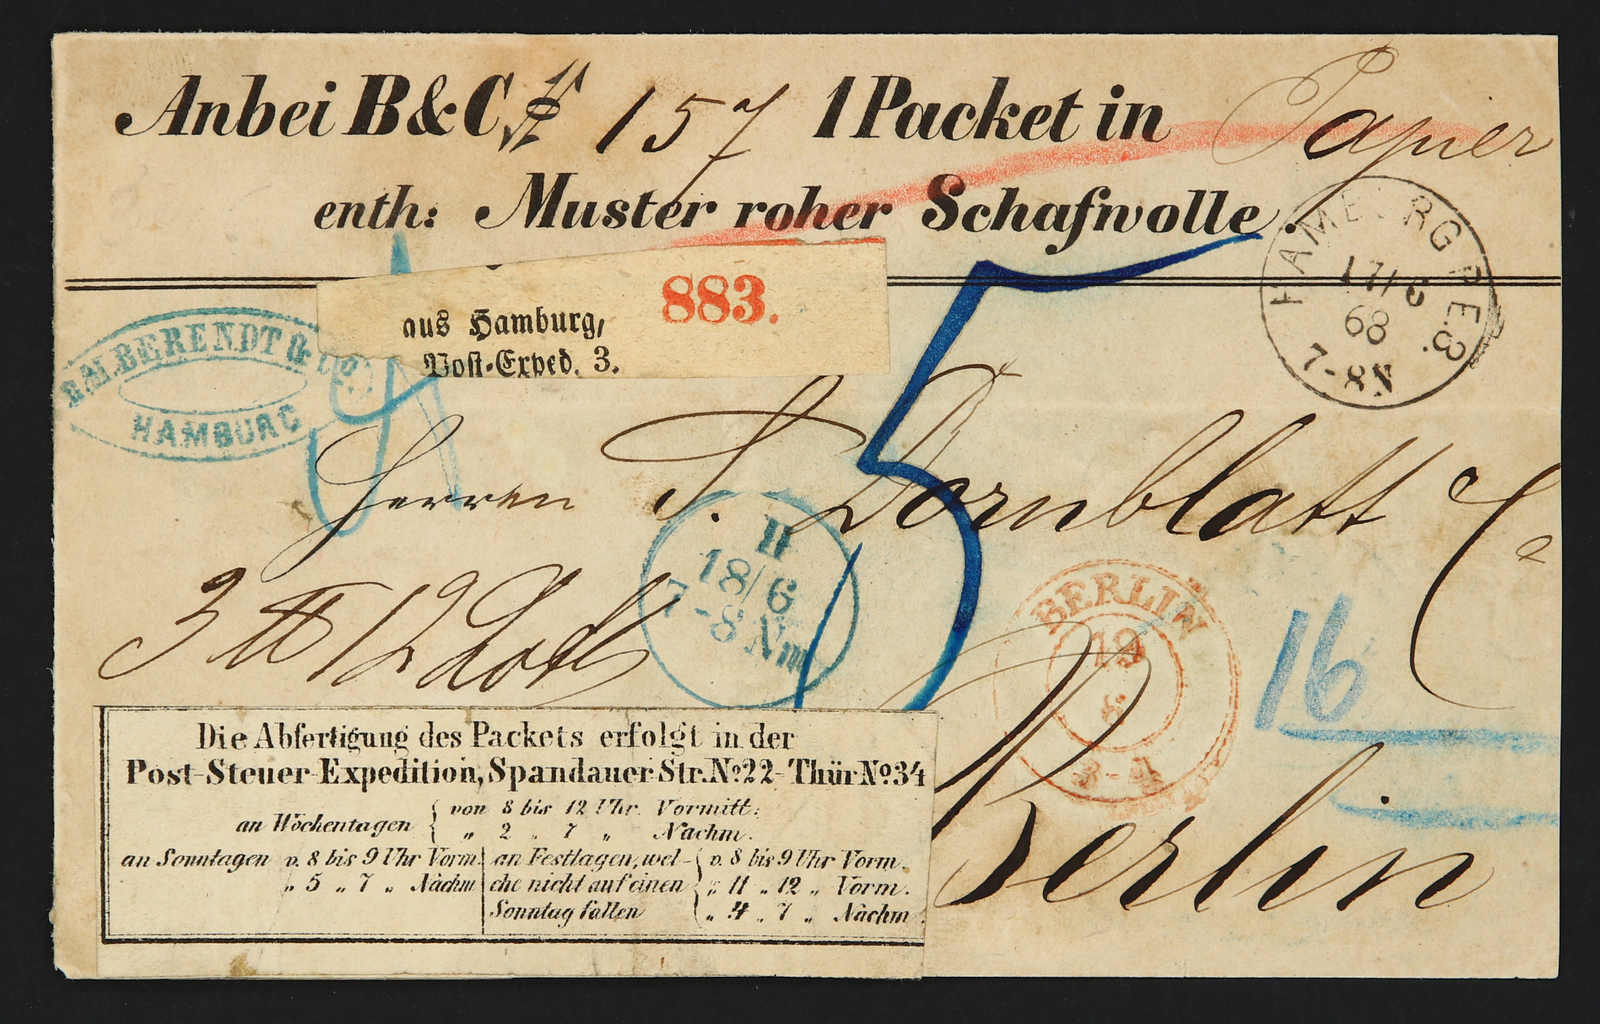 Anbei B&C № 157 1 Packet in Papier
enth: Muster roher Schafwolle.
HAMBURG P.E.3.
17/6
68
7-8N
aus Hamburg,
Post-Exped. 3.
883.
BERENDT & Co
HAMBURG
Herren S. Dornblatt & Co
3 ℔ 12 Loth
II
18/6
7-8 Nm
5
BERLIN
19
6
3-4
16
Berlin
Die Abfertigung des Packets erfolgt in der
Post-Steuer-Expedition, Spandauer Str. No. 22- Thür No. 34
an Wochentagen { von 8 bis 12 Uhr Vormitt:
„ 2 „ 7 „ Nachm.
an Sonntagen v. 8 bis 9 Uhr Vorm.
„ 5 „ 7 „ Nachm
an Festtagen, wel-
che nicht auf einen
Sonntag fallen
{ v. 8 bis 9 Uhr Vorm.
„ 11 „ 12 „ Vorm.
„ 4 „ 7 „ Nachm.